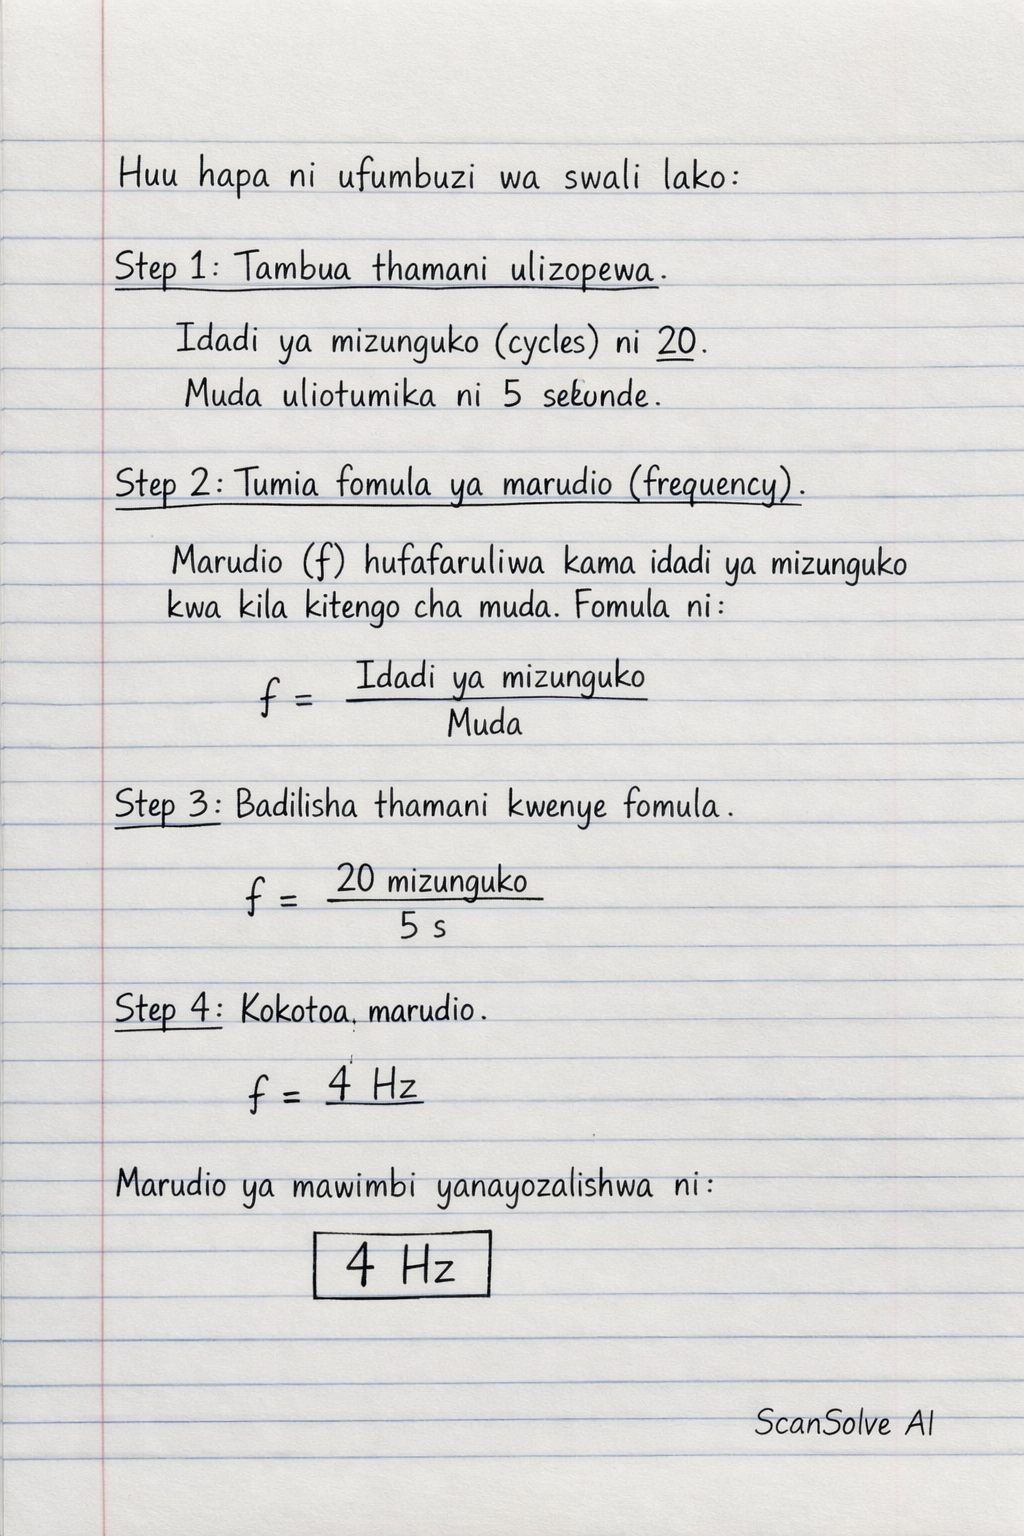 Huu hapa ni ufumbuzi wa swali lako:
Step 1: Tambua thamani ulizopewa.
Idadi ya mizunguko (cycles) ni 20.
Muda uliotumika ni 5 sekunde.
Step 2: Tumia fomula ya marudio (frequency).
Marudio (f) hufafaruliwa kama idadi ya mizunguko
kwa kila kitengo cha muda. Fomula ni:
f = Idadi ya mizunguko
Muda
Step 3: Badilisha thamani kwenye fomula.
f = 20 mizunguko
5 s
Step 4: Kokotoa, marudio.
f = 4 Hz
Marudio ya mawimbi yanayozalishwa ni:
4 Hz
ScanSolve AI